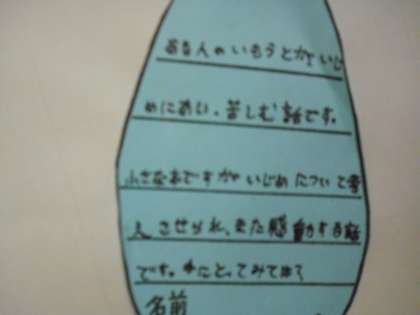 ある人のいもうとがいじ
めにあい、苦しむ話です。
小さな本ですがいじめについて考
えさせられ、また感動する話
です。手にとってみてほし
名前